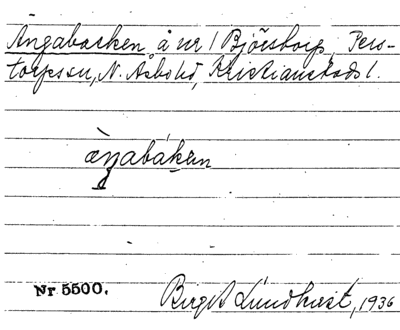 Ångabacken å nr 1 Björstorp, Pers-
torps sn, N. Åsbo hd, Kristianstads l.
àŋabákən
Nr 5500.
Birgit Lundkvist, 1936